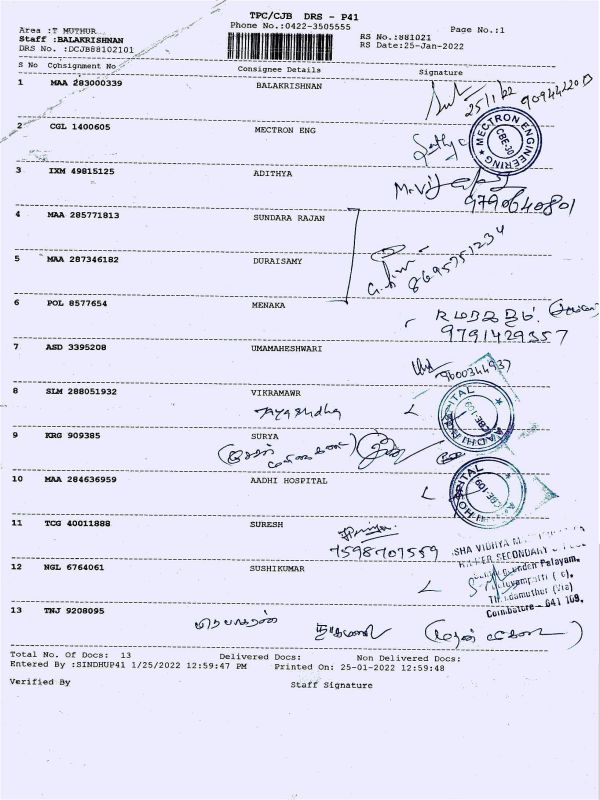 TPC/CJB DRS - P41
Phone No.:0422-3505555
Page No.:1
Area :T MUTHUR
Staff :BALAKRISHNAN
DRS No. :DCJB88102101
RS No.:881021
RS Date:25-Jan-2022
S No Consignment No Consignee Details Signature
1 MAA 283000339 BALAKRISHNAN
25/1/22
2 CGL 1400605 MECTRON ENG
MECTRON ENGINEERING
CBE-30
3 IXM 49815125 ADITHYA
9790640801
4 MAA 285771813 SUNDARA RAJAN
8695751234
5 MAA 287346182 DURAISAMY
6 POL 8577654 MENAKA
9791429357
7 ASD 3395208 UMAMAHESHWARI
9600344937
8 SLM 288051932 VIKRAMAWR
AADHI HOSPITAL
CBE-109
9 KRG 909385 SURYA
10 MAA 284636959 AADHI HOSPITAL
HOSPITAL
CBE-109
11 TCG 40011888 SURESH
7598707559
VIDHYA
SECONDARY
12 NGL 6764061 SUSHIKUMAR
Palayam,
(Via)
Coimbatore - 641 109.
13 TNJ 9208095
Total No. Of Docs: 13 Delivered Docs: Non Delivered Docs:
Entered By :SINDHUP41 1/25/2022 12:59:47 PM Printed On: 25-01-2022 12:59:48
Verified By Staff Signature